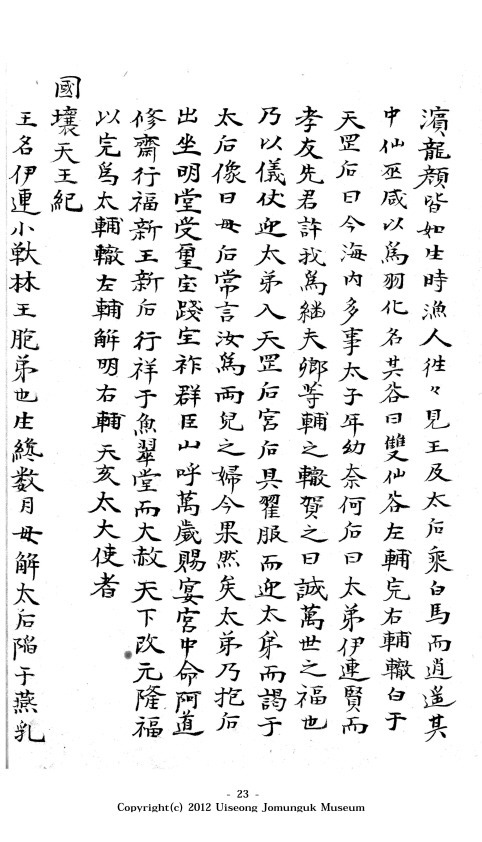 濵龍顔皆如生時漁人徃々見王及太后乘白馬而逍遥其
中仙巫咸以爲羽化名其谷曰雙仙谷左輔完右輔轍白于
天罡后曰今海內多事太子年幼奈何后曰太弟伊連賢而
孝友先君許我爲継夫卿等輔之轍賀之曰誠萬世之福也
乃以儀仗迎太弟入天罡后宮后具翟服而迎太弟而謁于
太后像曰母后常言汝爲兩兒之婦今果然矣太弟乃抱后
出坐明堂受璽宝踐宝祚群臣山呼萬歲賜宴宮中命阿道
修齋行福新王新后行祥于魚翠堂而大赦天下改元隆福
以完爲太輔轍左輔解明右輔天亥太大使者
國壤天王紀
王名伊連小獣林王胞弟也生終数月母解太后陥于燕乳
- 23 -
Copyright(c) 2012 Uiseong Jomunguk Museum